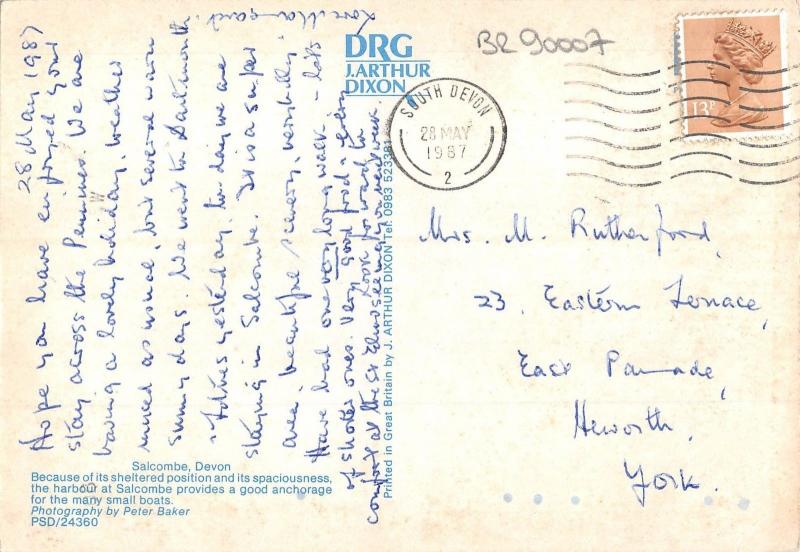 28 May 1987
Hope you have enjoyed your
stay across the Pennines. We are
having a lovely holiday, weather
mixed as usual, but several warm
sunny days. We went to Dartmouth
& Totnes yesterday, today we are
staying in Salcombe. It is a super
area, beautiful scenery,
Have had one very long walk - lots
of shorter ones. Very good food &
comfort at the St Elmo
Look forward to
seeing you next week.
Love
DRG
J.ARTHUR
DIXON
Printed in Great Britain by J. ARTHUR DIXON Tel: 0983 523381
BR 90007
SOUTH DEVON
28 MAY
1987
2
13P
Mrs. M. Rutherford,
23, Eastern Terrace,
East Parade,
Heworth,
York.
Salcombe, Devon
Because of its sheltered position and its spaciousness,
the harbour at Salcombe provides a good anchorage
for the many small boats.
Photography by Peter Baker
PSD/24360